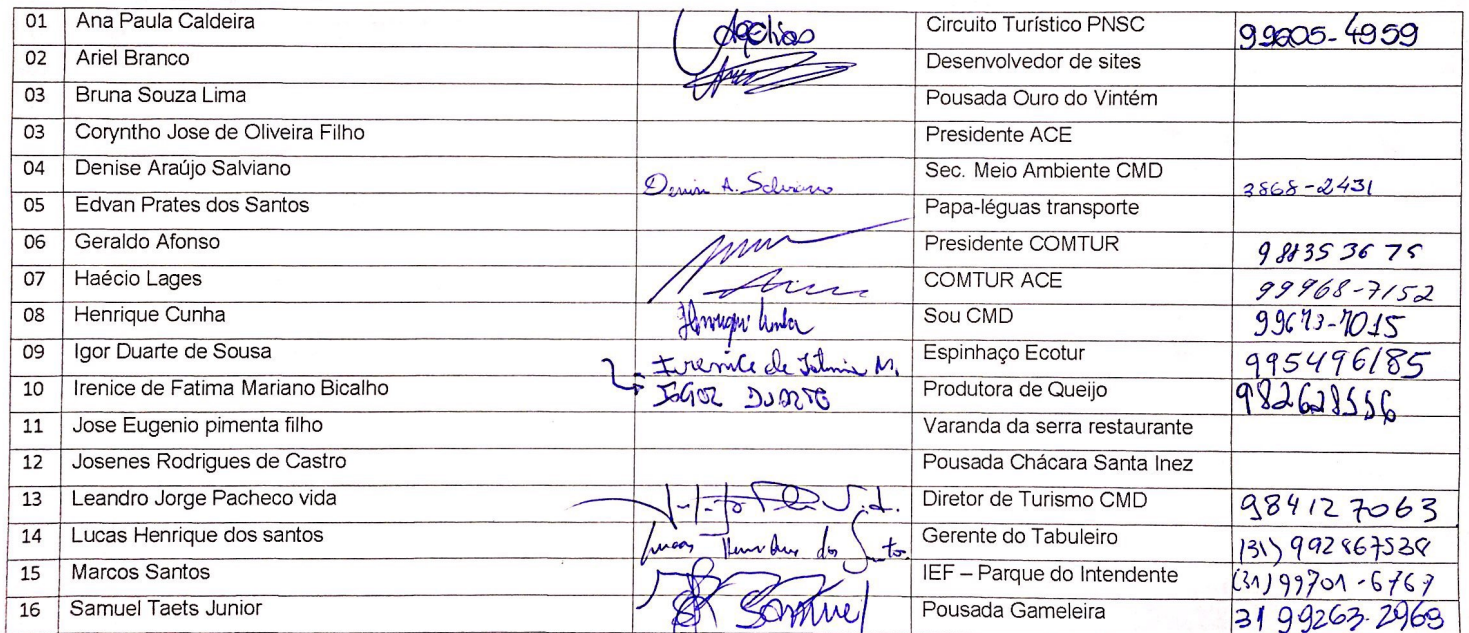 01 Ana Paula Caldeira Circuito Turístico PNSC 99605-4959
02 Ariel Branco Desenvolvedor de sites
03 Bruna Souza Lima Pousada Ouro do Vintém
03 Coryntho Jose de Oliveira Filho Presidente ACE
04 Denise Araújo Salviano Denise A. Salviano Sec. Meio Ambiente CMD 3868-2431
05 Edvan Prates dos Santos Papa-léguas transporte
06 Geraldo Afonso Presidente COMTUR 98835 3675
07 Haécio Lages COMTUR ACE 99968-7152
08 Henrique Cunha Henrique Cunha Sou CMD 99673-7015
09 Igor Duarte de Sousa Irenice de Fátima M. Espinhaço Ecotur 995496185
10 Irenice de Fatima Mariano Bicalho IGOR DUARTE Produtora de Queijo
11 Jose Eugenio pimenta filho Varanda da serra restaurante
12 Josenes Rodrigues de Castro Pousada Chácara Santa Inez
13 Leandro Jorge Pacheco vida Diretor de Turismo CMD 984127063
14 Lucas Henrique dos santos Lucas Henrique dos Santos Gerente do Tabuleiro (31) 992867538
15 Marcos Santos IEF – Parque do Intendente (31) 99701-6767
16 Samuel Taets Junior Samuel Pousada Gameleira 31 99263-2969